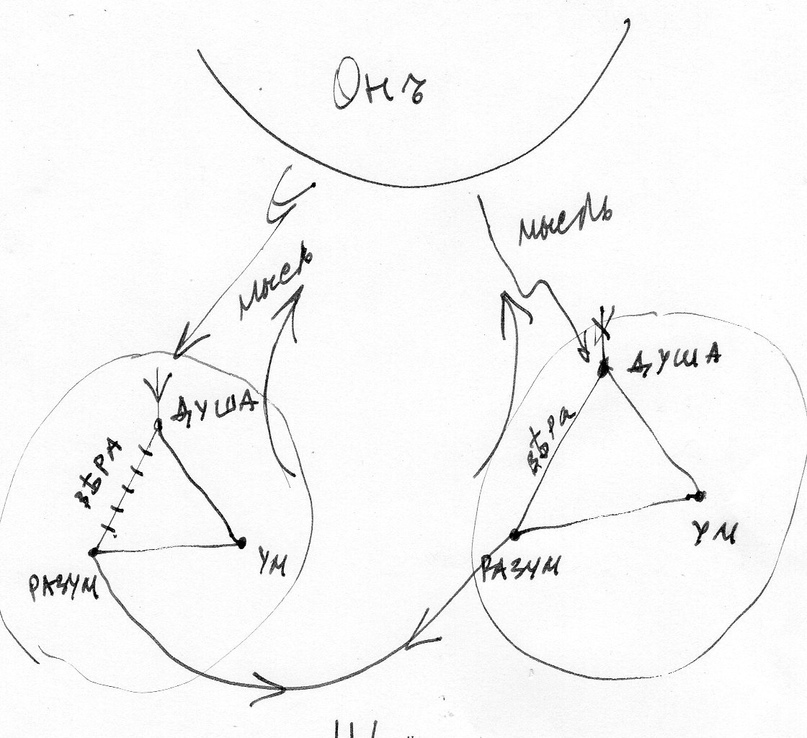 Онъ
мысль
мысль
ДУША
ДУША
вѣра
ВѢРА
УМ
УМ
РАЗУМ
РАЗУМ